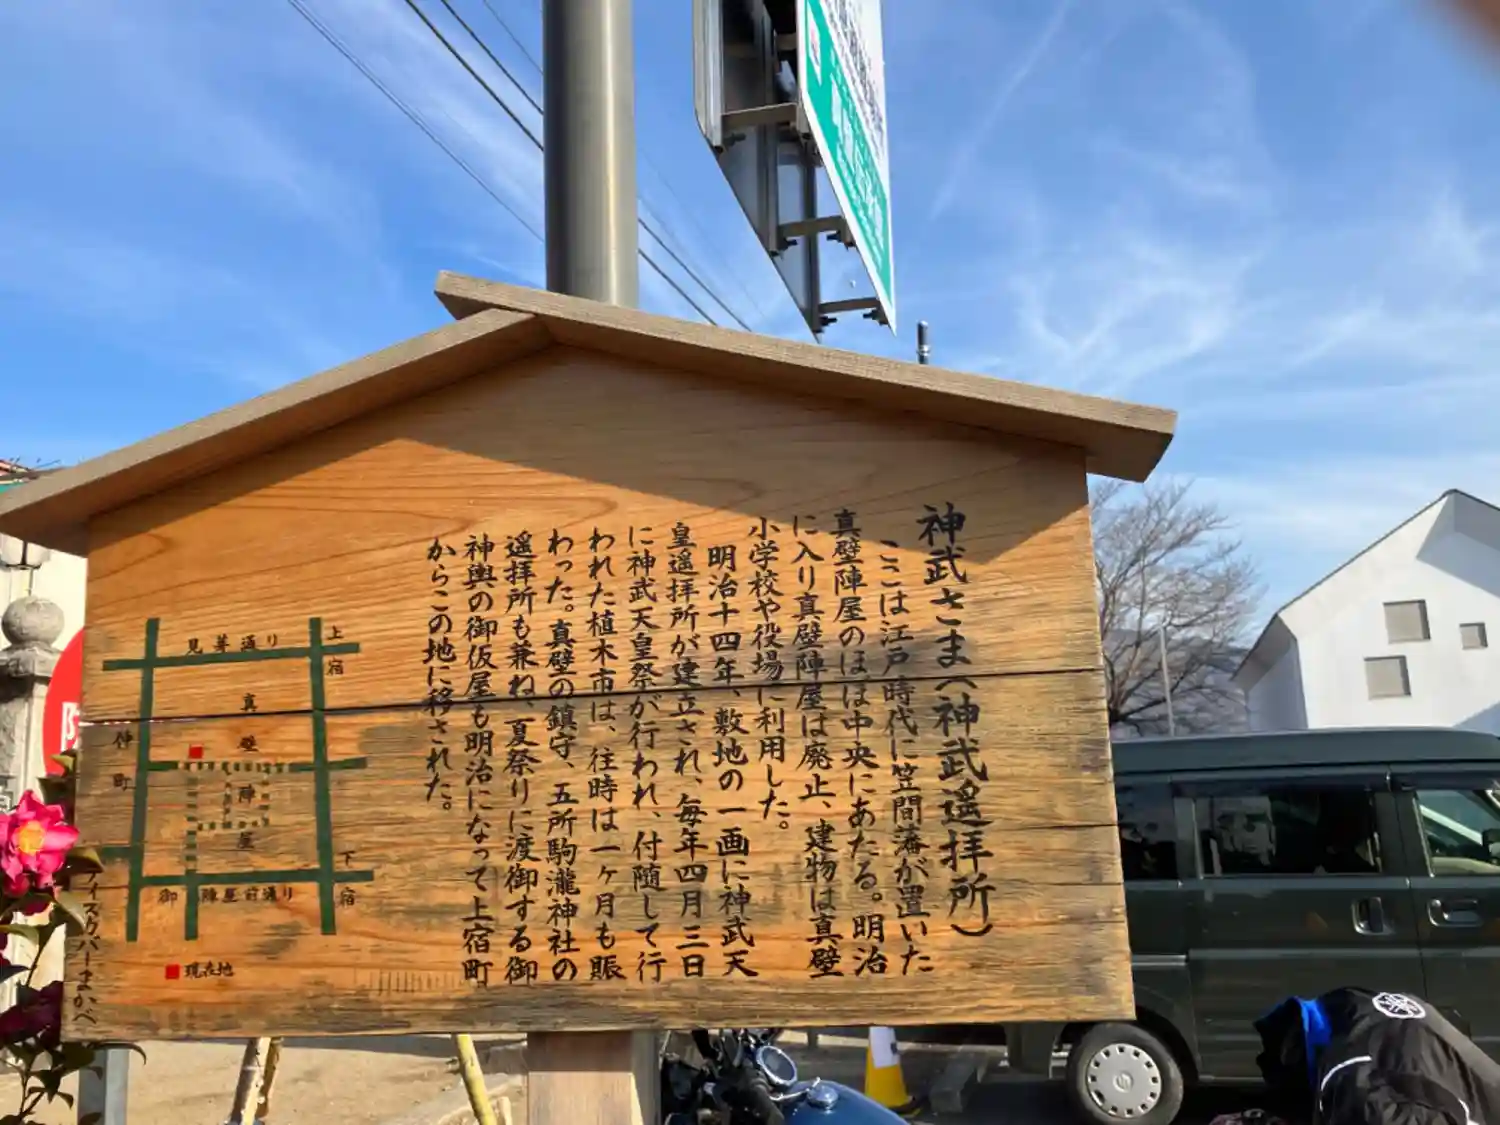 神武さま(神武遙拝所)
ここは江戸時代に笠間藩が置いた
真壁陣屋のほぼ中央にあたる。明治
に入り真壁陣屋は廃止、建物は真壁
小学校や役場に利用した。
明治十四年、敷地の一画に神武天
皇遥拝所が建立され、毎年四月三日
に神武天皇祭が行われ、付随して行
われた植木市は、往時は一ヶ月も賑
わった。真壁の鎮守、五所駒瀧神社の
遥拝所も兼ね、夏祭りに渡御する御
神輿の御仮屋も明治になって上宿町
からこの地に移された。
上宿
見世通り
真壁陣屋
仲町
下宿
御陣屋前通り
現在地
ディスカバーまかべ